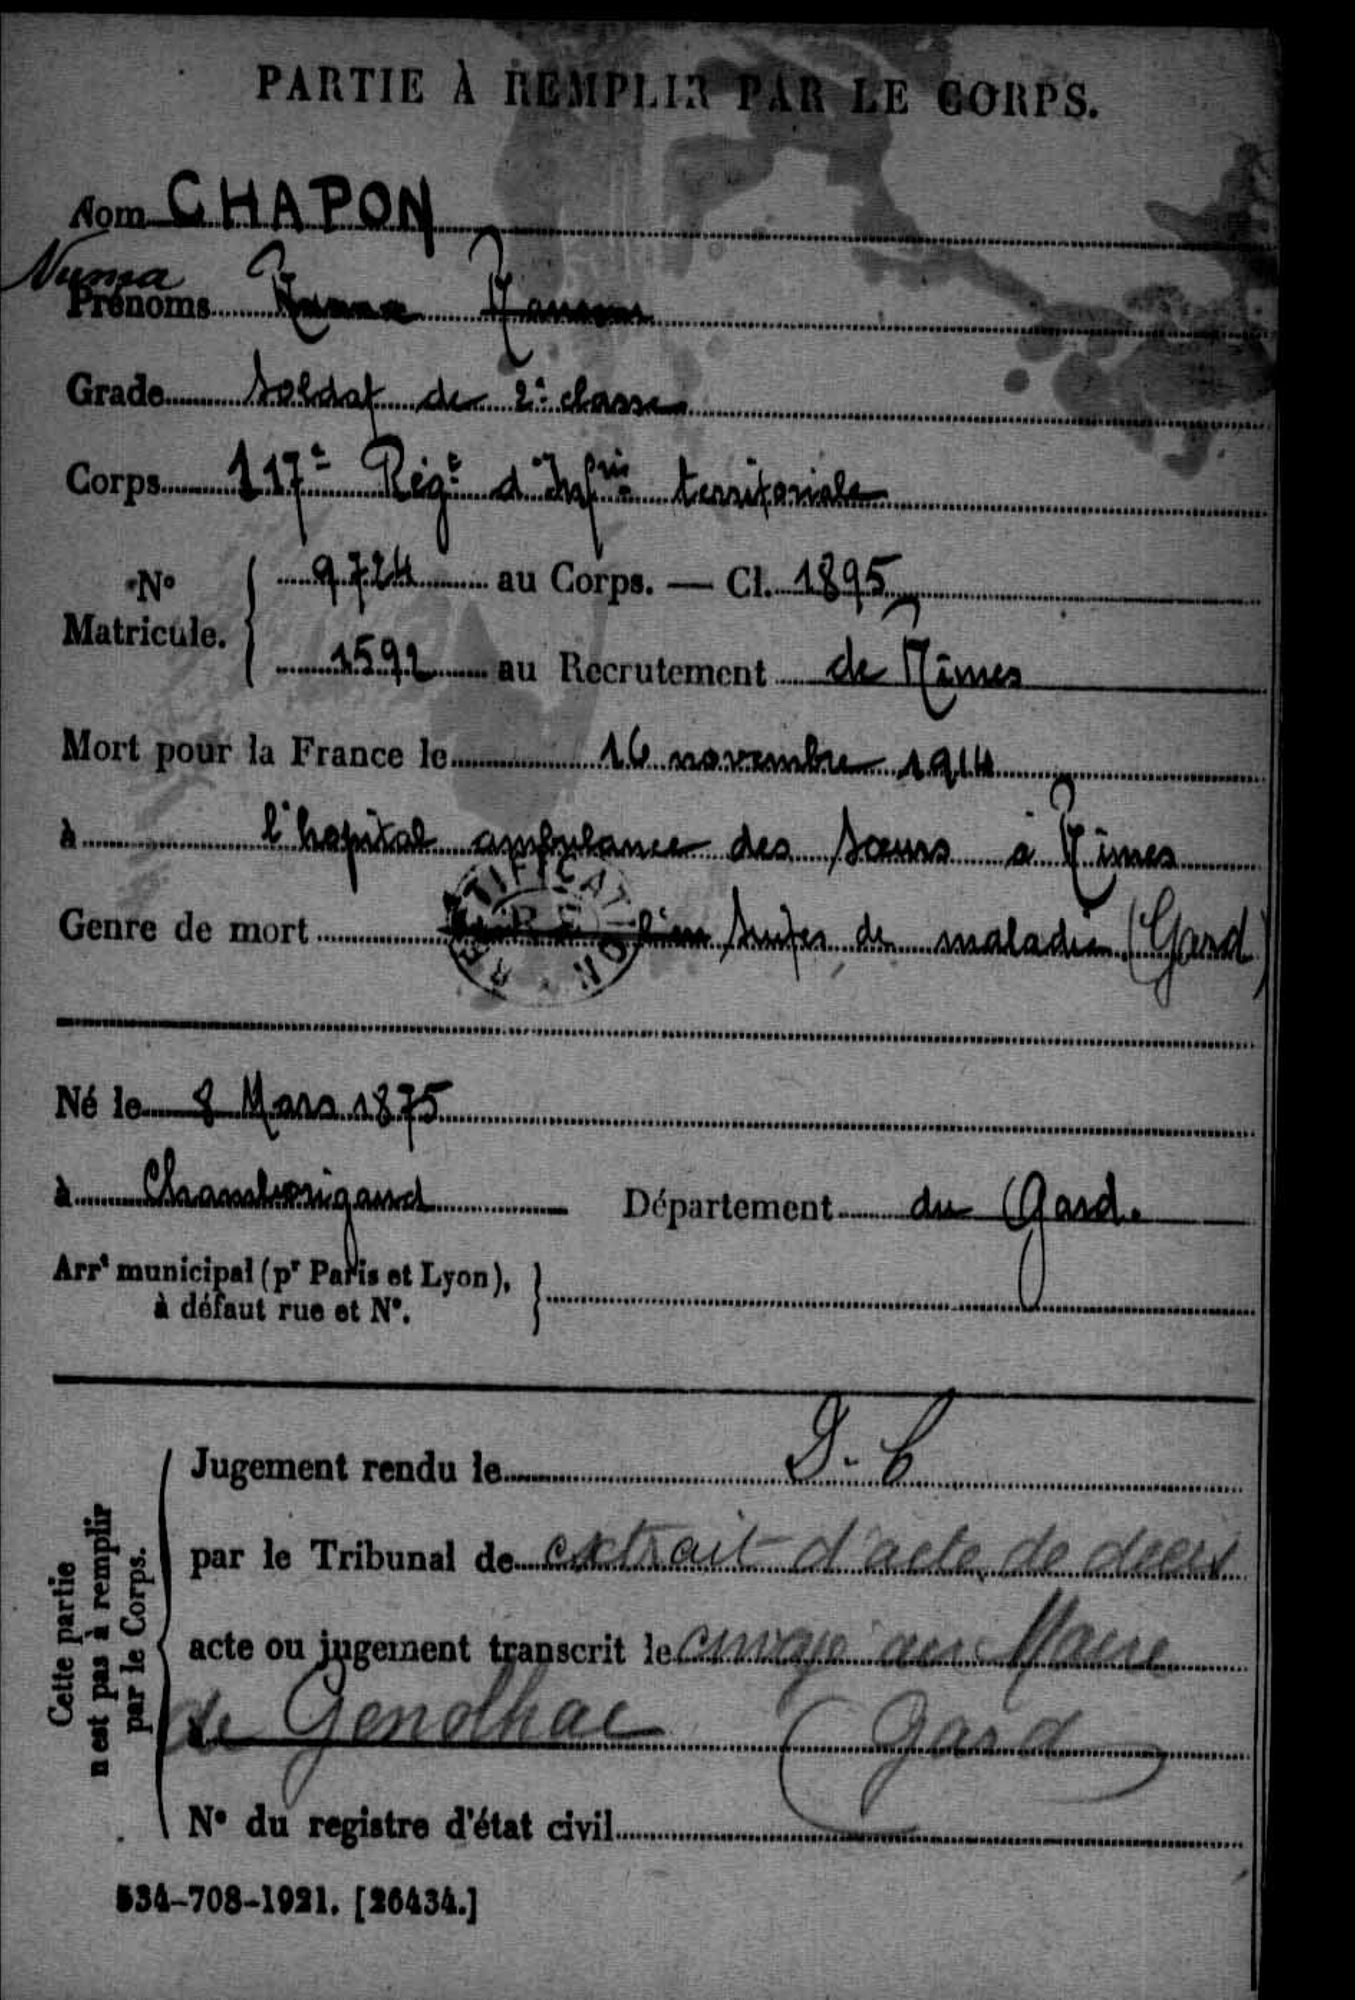 PARTIE À REMPLIR PAR LE CORPS.
Nom CHAPON
Numa
Prénoms
Grade Soldat de 2e classe
Corps 117e Régt d'Infrie territoriale
N° Matricule. 9724 au Corps. — Cl. 1895
1592 au Recrutement de Nîmes
Mort pour la France le 16 novembre 1914
à l'hopital ambulance des Sœurs à Nîmes
Genre de mort Suites de maladie (Gard)
RECTIFICATION
Né le 8 Mars 1875
à Chamborigaud Département du Gard.
Arrt municipal (pr Paris et Lyon), à défaut rue et N°.
Cette partie n'est pas à remplir par le Corps.
Jugement rendu le D. C
par le Tribunal de extrait d'acte de décès
acte ou jugement transcrit le envoyé au Maire
de Genolhac (Gard)
N° du registre d'état civil
534-708-1921. [26434.]